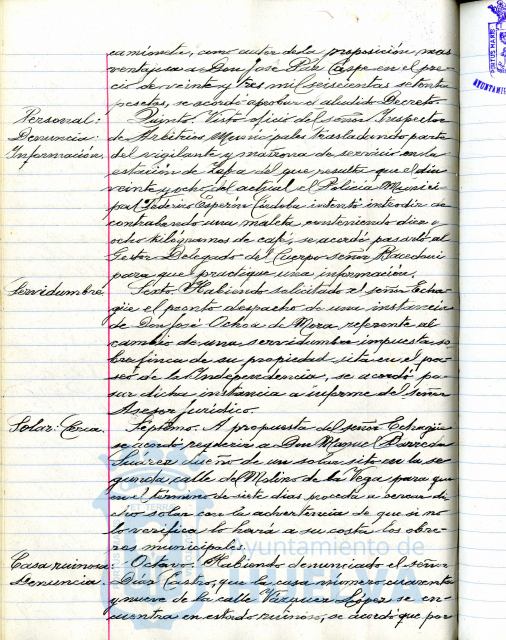 camioneta, como autor de la proposición mas
ventajosa a Don José Pau Carpe en el pre-
cio de veinte y tres mil seiscientas setenta
pesetas, se acordó aprobar el aludido Decreto.
Personal:
Denuncia:
Información.
Quinto. Visto oficio del señor Inspector
de Arbitrios Municipales trasladando parte
del vigilante y matrona de servicio en la
estación de Zafra del que resulta que el dia
veinte y ocho del actual el Policia Munici-
pal Federico Esperón intentó introducir de
contrabando una maleta conteniendo diez y
ocho kilogramos de café, se acordó pasarlo al
Gestor Delegado del Cuerpo señor
para que practique una información.
Servidumbre
Sexto. Habiendo solicitado el señor Echa-
güe el pronto despacho de una instancia
de Don José Ochoa de Mora referente al
cambio de una servidumbre impuesta so-
bre finca de su propiedad sita en el pa-
seo de la Independencia, se acordó pa-
sar dicha instancia a informe del señor
Asesor jurídico.
Solar: Cerca.
Septimo. A propuesta del señor Echagüe
se acordó requerir a Don Manuel Barreda
Suárez dueño de un solar sito en la se-
gunda calle del Molino de la Vega para que
en el término de siete dias proceda a cercar di-
cho solar con la advertencia de que si no
lo verifica lo hará a su costa los obre-
ros municipales.
Casa ruinosa
Denuncia.
Octavo. Habiendo denunciado el señor
Diaz Castro, que la casa número cuarenta
y nueve de la calle Vázquez López se en-
cuentra en estado ruinoso, se acordó que por
Ayuntamiento de
HUELVA
PORTUS MARIS
AYUNTAMI